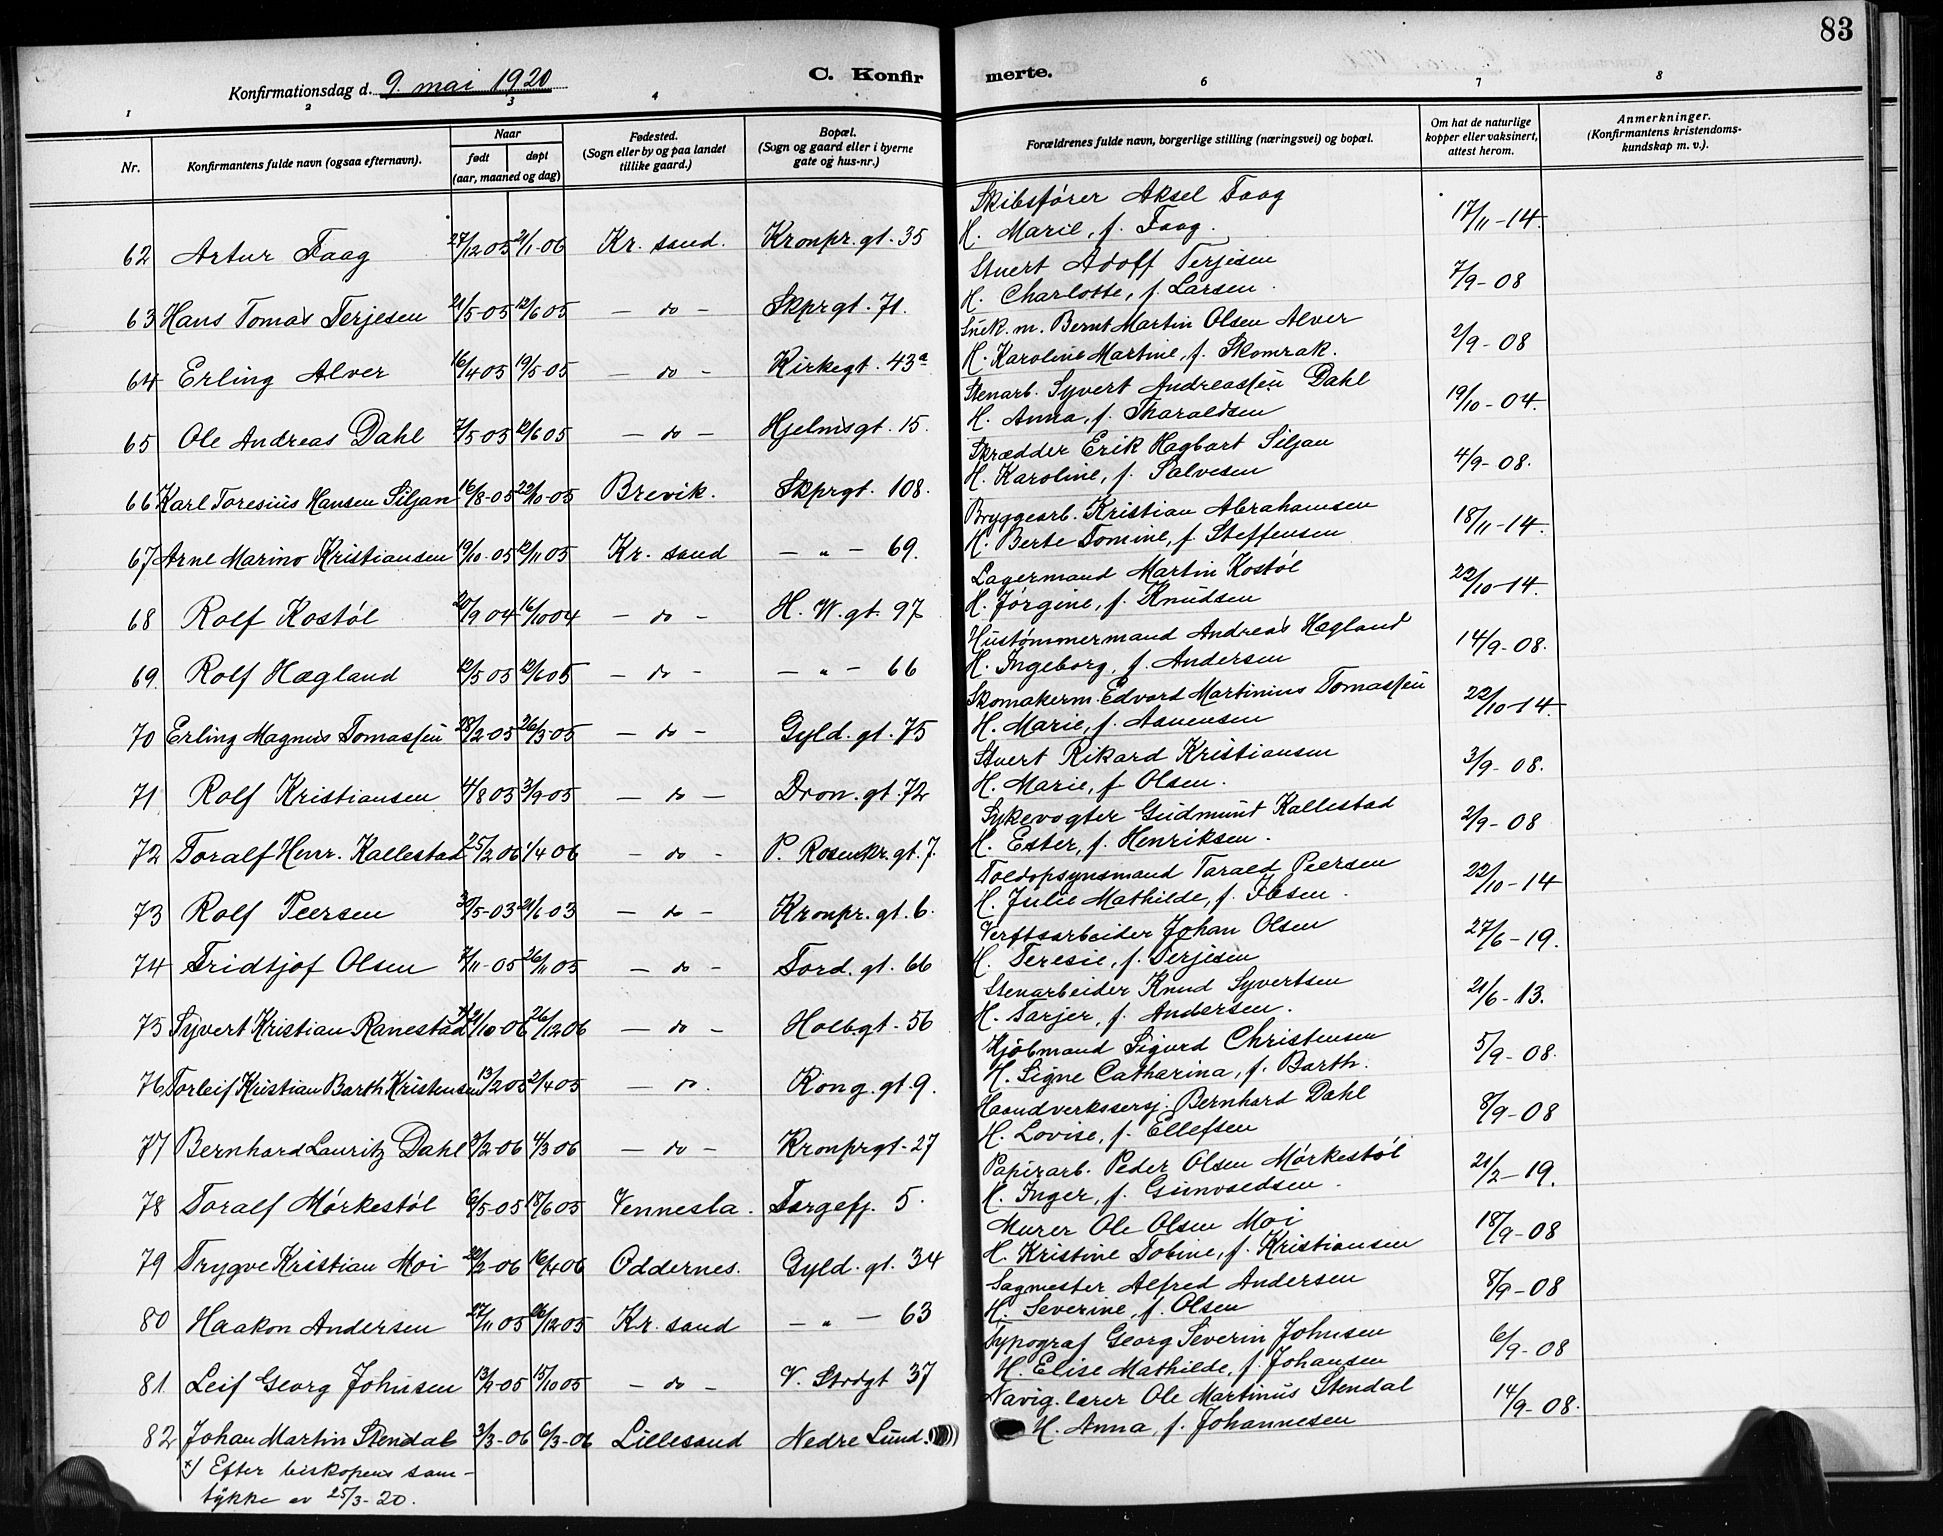 83
Konfirmationsdag d. 9. mai 1920
C. Konfirmerte.
1 2 3 4 6 7 8
Nr. Konfirmantens fulde navn (ogsaa efternavn). Naar født døpt (aar, maaned og dag) Fødested. (Sogn eller by og paa landet tillike gaard.) Bopæl. (Sogn og gaard eller i byerne gate og hus-nr.) Forældrenes fulde navn, borgerlige stilling (næringsvei) og bopæl. Om hat de naturlige kopper eller vaksinert, attest herom. Anmerkninger. (Konfirmantens kristendomskundskap m. v.).
62 Artur Faag 27/12 05 21/1-06 Kr. sand. Kronpr. gt. 35 Skibsfører Aksel Faag 17/11-14.
H. Marie, f. Faag.
63 Hans Tomas Terjesen 21/5-05 12/6 05 - do - Skprgt. 71. Stuert Adolf Terjesen 7/9-08
H. Charlotte, f. Larsen.
64 Erling Alver 16/4 05 19/5-05 - do - Kirkegt. 43a Snek. m. Bernt Martin Olsen Alver 2/9-08
H. Karoline Martine, f. Skomrak.
65 Ole Andreas Dahl 7/5-05 12/6 05 - do - Hjelmsgt. 15. Stenarb. Syvert Andreassen Dahl 19/10-04.
H. Anna, f. Tharaldsen
66 Karl Toresius Hansen Siljan 16/8-05 22/10-05 Brevik. Skprgt. 108. Skrædder Erik Hagbart Siljan 4/9-08.
H. Karoline, f. Salvesen
67 Arne Marino Kristiansen 19/10-05 12/11 05 Kr. sand - " - 69. Bryggearb. Kristian Abrahamsen 18/11-14.
H. Berte Tomine, f. Steffensen
68 Rolf Kostøl 20/9 04 16/10 04 - do - H. W. gt. 97 Lagermand Martin Kostøl 22/10-14.
H. Jørgine, f. Knudsen
69. Rolf Hægland 12/5 05 12/6 05 - do - - " - 66 Hustømmermand Andreas Hægland 14/9-08.
H. Ingeborg, f. Andersen
70 Erling Magnus Tomassen 28/2-05 26/3-05 - do - Gyld. gt. 75 Skomakerm. Edvard Martinius Tomassen 22/10-14.
H. Marie, f. Aanensen
71 Rolf Kristiansen 4/8 05 3/9-05 - do - Dron. gt. 72 Stuert Rikard Kristiansen 3/9-08.
H. Marie, f Olsen.
72 Toralf Henr. Kallestad 25/2 06 1/4 06 - do - P. Rosenkr. gt. 7. Sykevogter Gudmunt Kallestad 2/9-08
H. Ester, f. Henriksen.
73 Rolf Peersen 30/5-03 21/6 03 - do - Kronpr. gt. 6. Toldopsynsmand Tarald Peersen 22/10-14
H. Julie Mathilde, f. Ibsen.
74 Fridtjof Olsen 7/11-05 26/11 05 - do - Tord. gt. 66 Verftsarbeider Johan Olsen 27/6-19.
H. Teresie, f. Terjesen
75 Syvert Kristian Ranestad x) /10-06 26/12 06 - do - Holbgt. 56 Stenarbeider Knud Syvertsen 21/6-13.
H. Tarjer, f. Andersen.
76 Torleif Kristian Barth Kristensen 13/2 05 2/4 05 - do. Kong. gt. 9. Kjøbmand Sigurd Christensen 5/9-08.
H. Signe Catharina, f. Barth.
77 Bernhard Lauritz Dahl 9/2-06 4/3 06 - do - Kronprgt. 27 Haandverkssersj. Bernhard Dahl 8/9-08
H. Lovise, f. Ellefsen
78 Toralf Mørkestøl 6/5-05 18/6 05 Vennesla. Torgefj. 5. Papirarb. Peder Olsen Mørkestøl 21/2-19.
H. Inger, f. Gunvaldsen.
79 Trygve Kristian Moi 22/2-06 16/4 06 Oddernes. Gyld. gt. 34 Murer Ole Olsen Moi 18/9-08
H. Kristine Tobine, f. Kristiansen
80 Haakon Andersen 27/11 05 26/12 05 Kr. sand - " - 63 Sagmester Alfred Andersen 8/9-08
H. Severine, f. Olsen
81. Leif Georg Johnsen 13/9-05 15/10 05 - do - V. Strdgt 37 Typograf Georg Severin Johnsen 6/9-08
H. Elise Mathilde, f. Johansen
82 Johan Martin Stendal 3/3-06 6/3-06 Lillesand Nedre Lund. Navig. lærer Ole Martinus Stendal 14/9-08.
H. Anna, f. Johannesen
x) Efter biskopens sam-
tykke av 25/3-20.